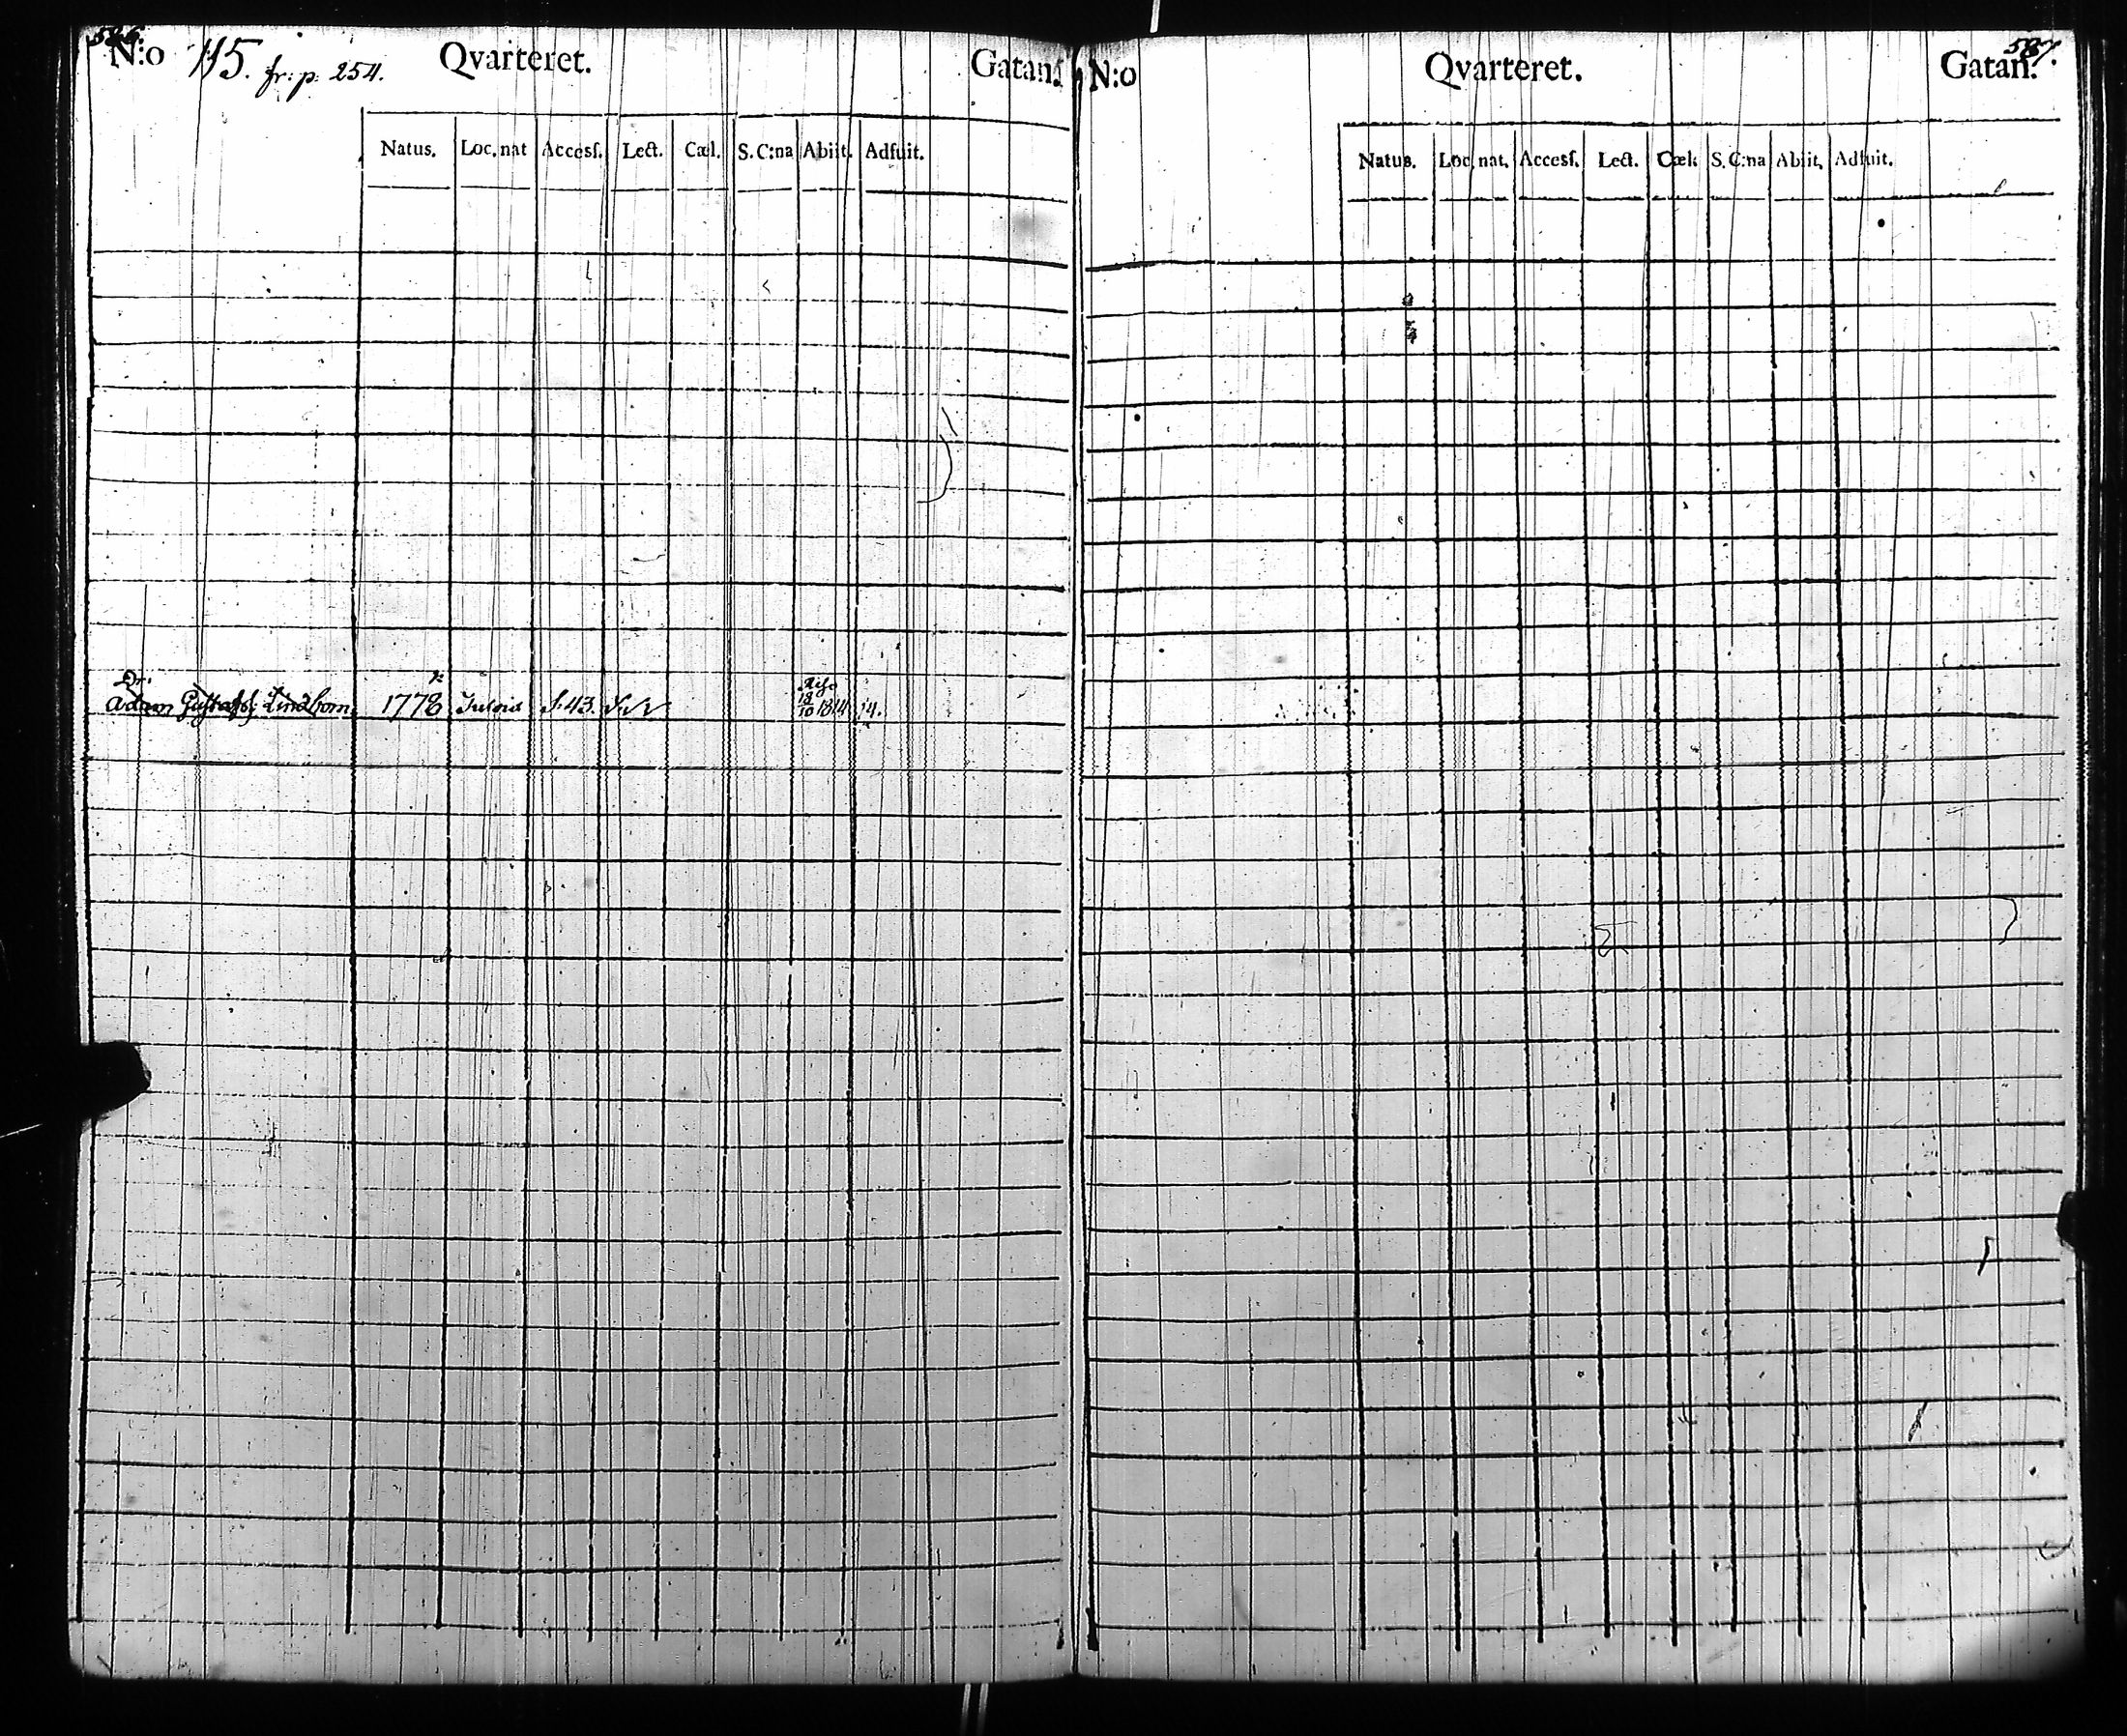 586.
N:o 115. fr: p: 254. Qvarteret. Gatan.
Natus. Loc. nat Accesf. Lect. Cæl. S. C:na Abiit. Adfuit.
Dr:
Adam Gustafss: Lindbom. 1778 S.43. 18/10 1814 14.
587.
N:o Qvarteret. Gatan.
Natus. Loc. nat. Accesf. Lect. Cæl. S. C:na Abiit. Adfuit.